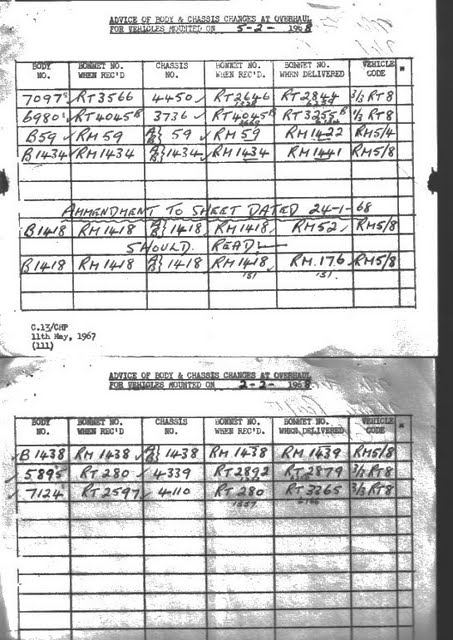 ADVICE OF BODY & CHASSIS CHANGES AT OVERHAUL
FOR VEHICLES MOUNTED ON 5-2- 1968
BODY NO. BONNET NO. WHEN REC'D CHASSIS NO. BONNET NO. WHEN REC'D. BONNET NO. WHEN DELIVERED VEHICLE CODE *
7097 RT3566 4450 RT2646 RT2844 3/3 RT8
6980 RT4045 3736 RT4045 RT3255 1/3 RT8
B59 RM59 A} B} 59 RM59 RM1422 RM5/4
B1434 RM1434 A} B} 1434 RM1434 RM1441 RM5/8
AMMENDMENT TO SHEET DATED 24-1-68
B1418 RM1418 A} B} 1418 RM1418 RM52 RM5/8
SHOULD READ:-
B1418 RM1418 A} B} 1418 RM1418 RM.176 RM5/8
C.13/CHP
11th May, 1967
(111)
ADVICE OF BODY & CHASSIS CHANGES AT OVERHAUL
FOR VEHICLES MOUNTED ON 2-2- 1968
BODY NO. BONNET NO. WHEN REC'D CHASSIS NO. BONNET NO. WHEN REC'D. BONNET NO. WHEN DELIVERED VEHICLE CODE *
B1438 RM1438 A} B} 1438 RM1438 RM1439 RM5/8
5895 RT280 4339 RT2892 RT2879 3/3 RT8
7124 RT2597 4110 RT280 RT3365 3/3 RT8